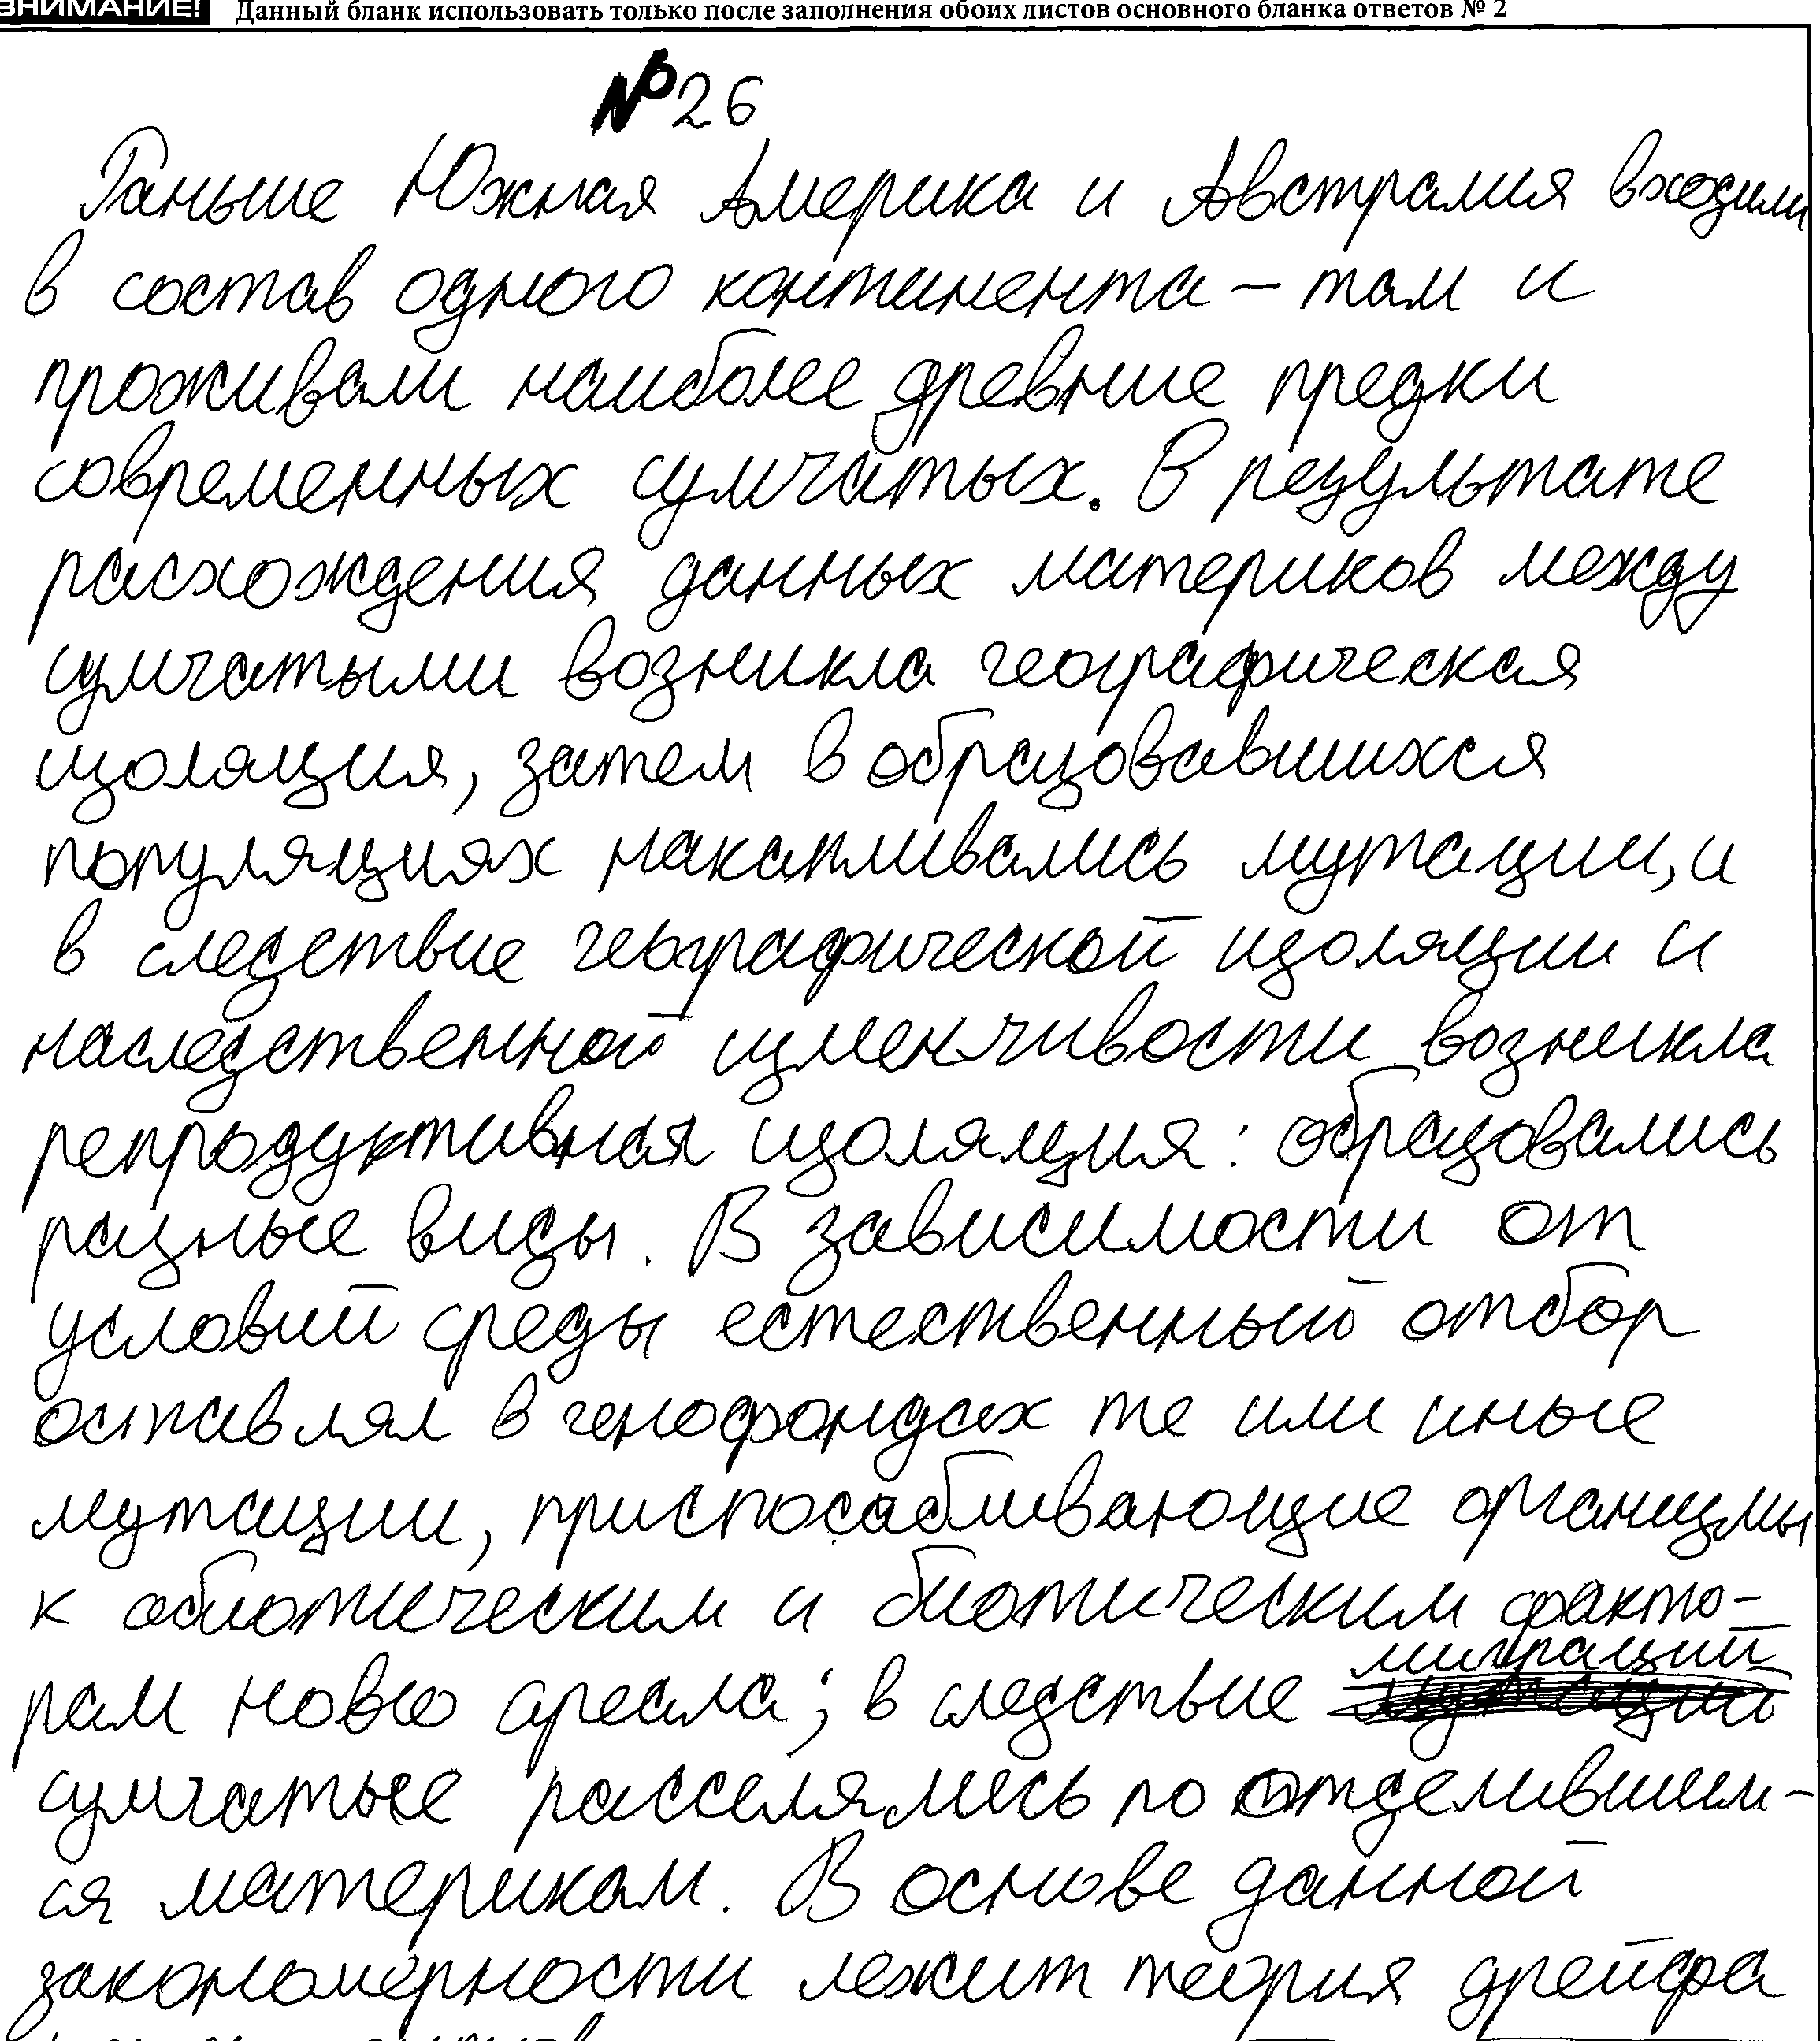 ВНИМАНИЕ! Данный бланк использовать только после заполнения обоих листов основного бланка ответов № 2
№26
Раньше Южная Америка и Австралия входили
в состав одного континента – там и
проживали наиболее древние предки
современных сумчатых. В результате
расхождения данных материков между
сумчатыми возникла географическая
изоляция, затем в образовавшихся
популяциях накапливались мутации, и
в следствие географической изоляции и
наследственной изменчивости возникла
репродуктивная изоляция: образовались
разные виды. В зависимости от
условий среды естественный отбор
оставлял в генофондах те или иные
мутации, приспосабливающие организмы
к абиотическим и биотическим факто-
рам новго ареала; в следствие миграций
сумчатые расселялись по отделившим-
ся материкам. В основе данной
закономерности лежит теория дрейфа